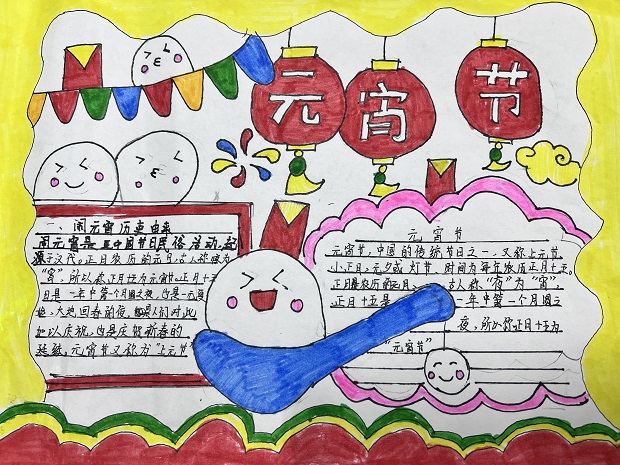 元宵节
一、闹元宵历史由来
闹元宵是 中国节日民俗活动,起
源于汉代。正月农历的元月,古人称夜为
“宵”,所以称正月十五为元宵节。正月十五
日是一年中第一个月圆之夜,也是一元复
始,大地回春的夜, 人们对此
加以庆祝,也是庆贺新春的
延续。元宵节又称为“上元节”
元宵节
元宵节,中国的传统节日之一,又称上元节,
小正月,元夕或灯节,时间为每年农历正月十五。
正月是农历的元月, 古人称“夜”为“宵”,
正月十五是 一年中第一个月圆之
夜,所以称正月十五为
“元宵节”